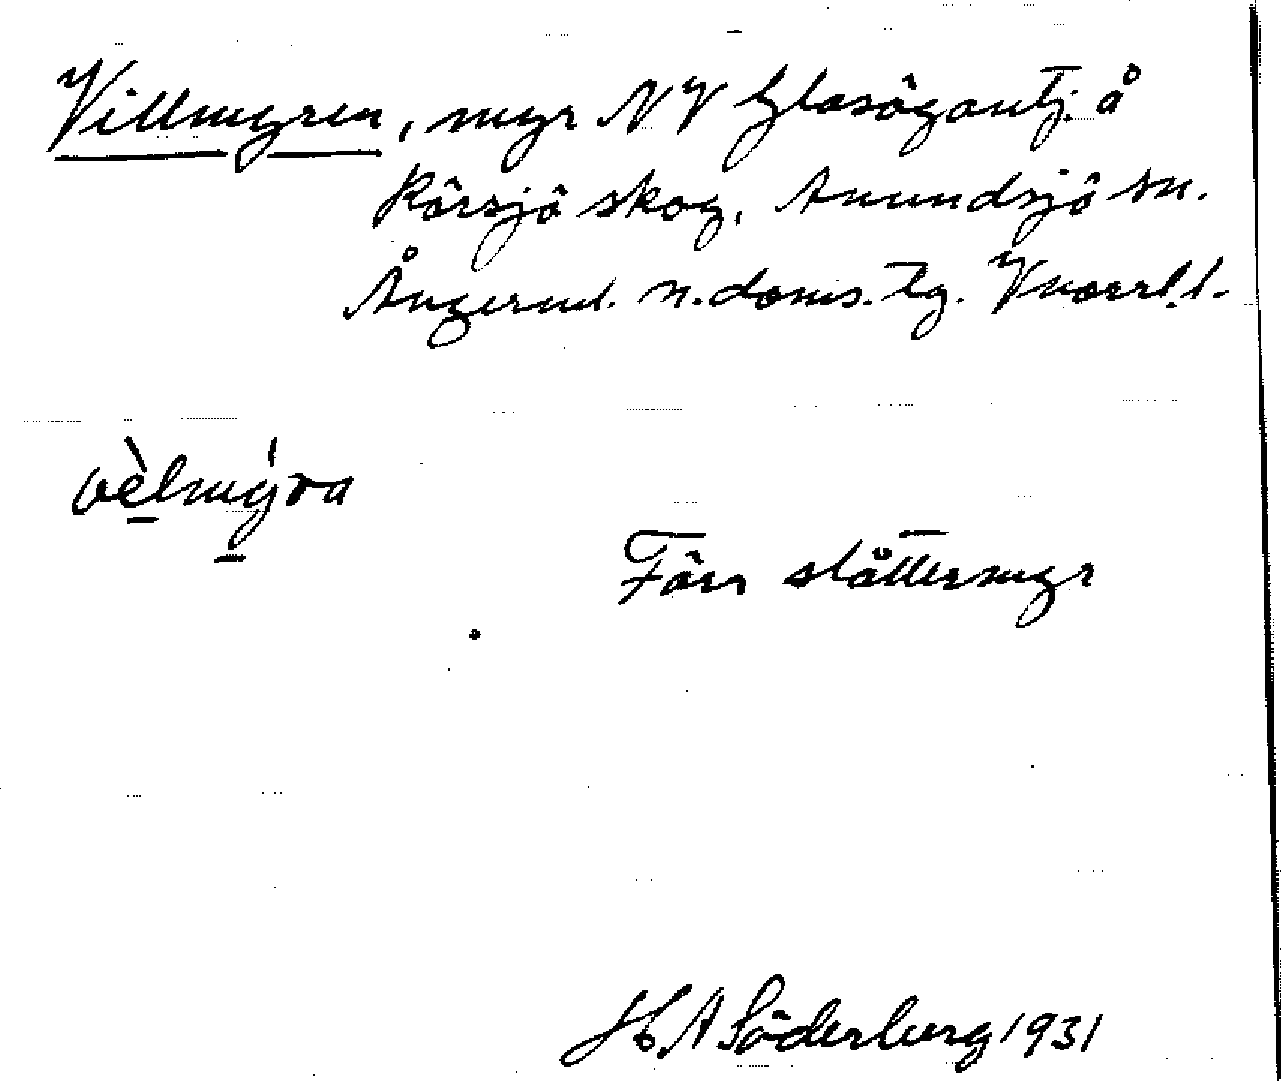 Villmyren, myr NV Glasögontj. å
Körsjö skog, Anundsjö sn.
Ångerml. n. doms. tg. Vnorrl. l.
vèlmýra
Förr slåttermyr
H A Söderberg 1931